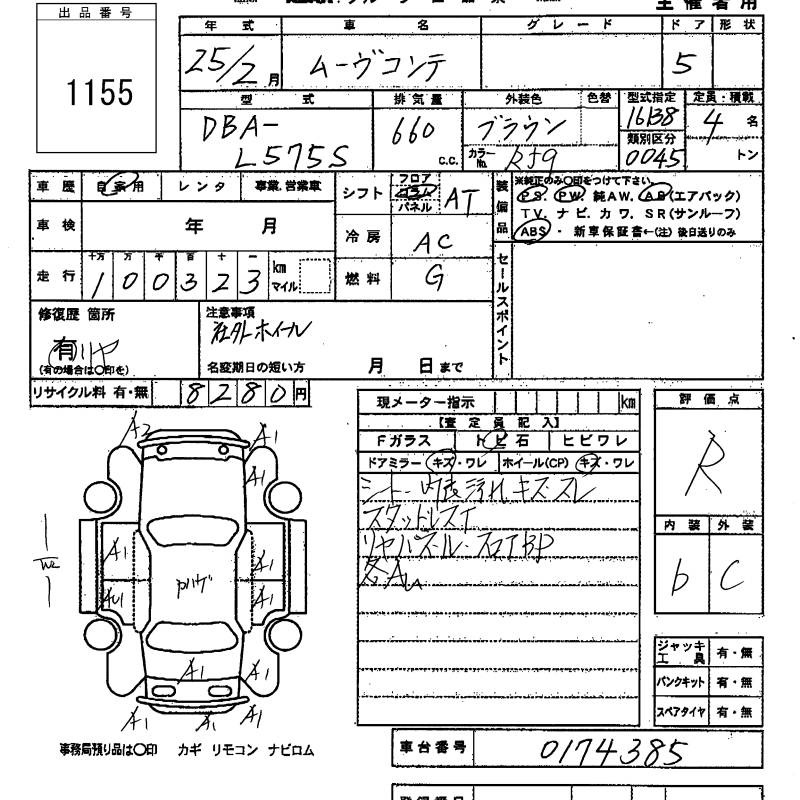 主催者用
出品番号
1155
年式 車名 グレード ドア 形状
25/2月 ムーヴコンテ 5
型式 排気量 外装色 色替 型式指定 定員・積載
DBA-L575S 660 c.c. ブラウン 16138 4名
カラーNo. R59 類別区分 0045 トン
車歴 自家用 レンタ 事業.営業車
シフト フロア コラム パネル AT
装備品 ※純正のみ〇印をつけて下さい
PS. PW. 純AW. AB(エアバック)
TV. ナビ. カワ. SR(サンルーフ)
ABS・新車保証書←(注)後日送りのみ
車検 年 月
冷房 AC
走行 十万 万 千 百 十 一
100323 km マイル
燃料 G
セールスポイント
修復歴 箇所
有 リヤ
(有の場合は〇印を)
注意事項
社外ホイール
名変期日の短い方 月 日まで
リサイクル料 有・無 8280円
現メーター指示 km
【査定員記入】
Fガラス トビ石 ヒビワレ
ドアミラー キズ・ワレ ホイール(CP) キズ・ワレ
シート・内装汚れキズスレ
スタットレスT
リヤパネル・フロアBP
各AU
評価点
R
内装 外装
b C
A2 A1
A1
A1 A1
AU1 A1
A1
A1
A1 A1 A1
ジャッキ工具 有・無
パンクキット 有・無
スペアタイヤ 有・無
事務局預り品は〇印 カギ リモコン ナビロム
車台番号 0174385